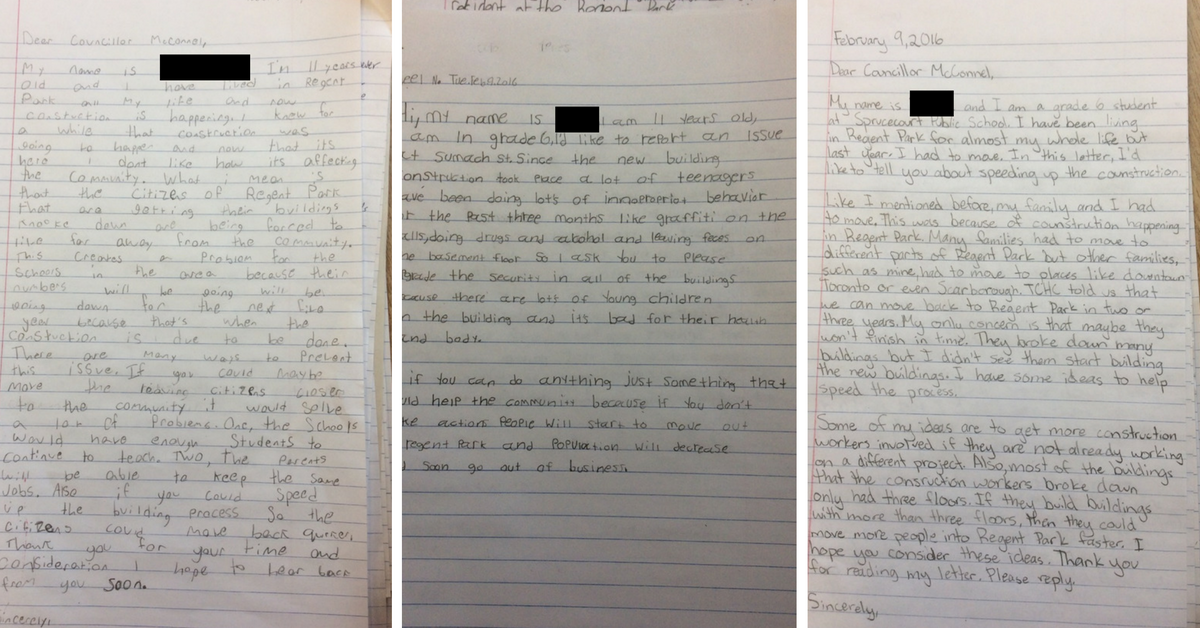 Dear Councillor McConnel,
My name is I'm 11 years
old and I have lived in Regent
Park all my life and now
constuction is happening. I knew for
a while that constuction was
going to happen and now that its
here I dont like how its affecting
the Community. What i mean is
that the Citizens of Regent Park
that are getting their buildings
knocked down are being forced to
live far away from the community.
This Creates a Problem for the
Schools in the area because their
numbers will be going will be
going down for the next five
year because that's when the
constuction is due to be done.
There are many ways to Prevent
this issue. If you could maybe
move the leaving citizens closer
to the community it would solve
a lot of Problems. One, the Schools
would have enough Students to
continue to teach. Two, the Parents
will be able to keep the same
Jobs. Also if you could Speed
up the building process so the
citizens could move back quicker.
Thank you for your time and
consideration I hope to hear back
from you soon.
incerely,
ver
resident at the Regent Park
eel No Tue. Feb. 9. 2016
i, my name is I am 11 years old,
am In grade 6, I'd like to report an issue
t Sumach st. Since the new building
onstruction took Place a lot of teenagers
ave been doing lots of innoproprioit behavior
r the Past three months like graffiti on the
alls, doing drugs and alcohol and leaving feces on
he basement floor So I ask You to Please
the security in all of the buildings
cause there are lots of Young children
n the building and its bad for their health
and body.
if You can do anything just something that
uld help the communiti because if You don't
ke action People will start to move out
regent Park and Population will decrease
d soon go out of business.
February 9, 2016
Dear Councillor McConnel,
My name is and I am a grade 6 student
at Sprucecourt Public School. I have been living
in Regent Park for almost my whole life but
last year, I had to move. In this letter, I'd
like to tell you about speeding up the counstruction.
Like I mentioned before, my family and I had
to move. This was because of counstruction happening
in Regent Park. Many families had to move to
different parts of Regent Park but other families,
such as mine, had to move to places like downtown
Toronto or even Scarborough. TCHC told us that
we can move back to Regent Park in two or
three years. My only concern is that maybe they
won't finish in time. They broke down many
buildings but I didn't see them start building
the new buildings. I have some ideas to help
speed the process.
Some of my ideas are to get more construction
workers involved if they are not already working
on a different project. Also, most of the buildings
that the consruction workers broke down
only had three floors. If they build buildings
with more than three floors, then they could
move more people into Regent Park faster. I
hope you consider these ideas. Thank you
for reading my letter. Please reply.
Sincerely,